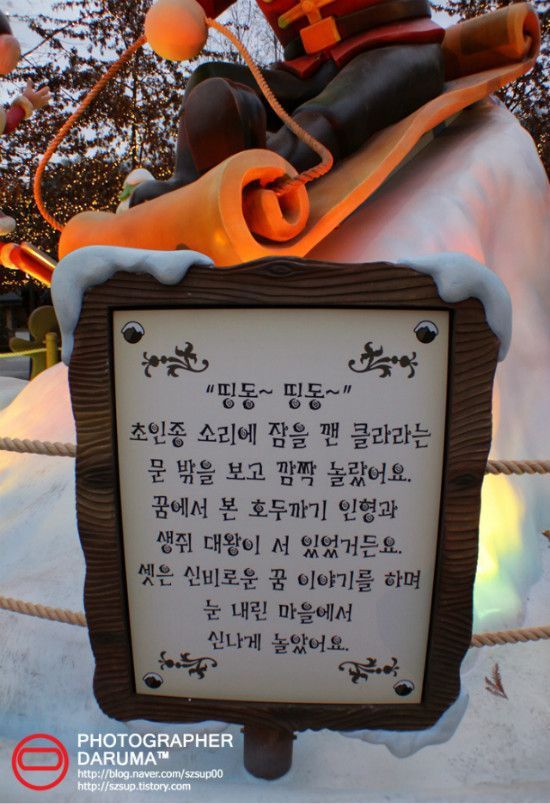 “띵동~ 띵동~”
초인종 소리에 잠을 깬 클라라는
문 밖을 보고 깜짝 놀랐어요.
꿈에서 본 호두까기 인형과
생쥐 대왕이 서 있었거든요.
셋은 신비로운 꿈 이야기를 하며
눈 내린 마을에서
신나게 놀았어요.
PHOTOGRAPHER
DARUMA™
http://blog.naver.com/szsup00
http://szsup.tistory.com